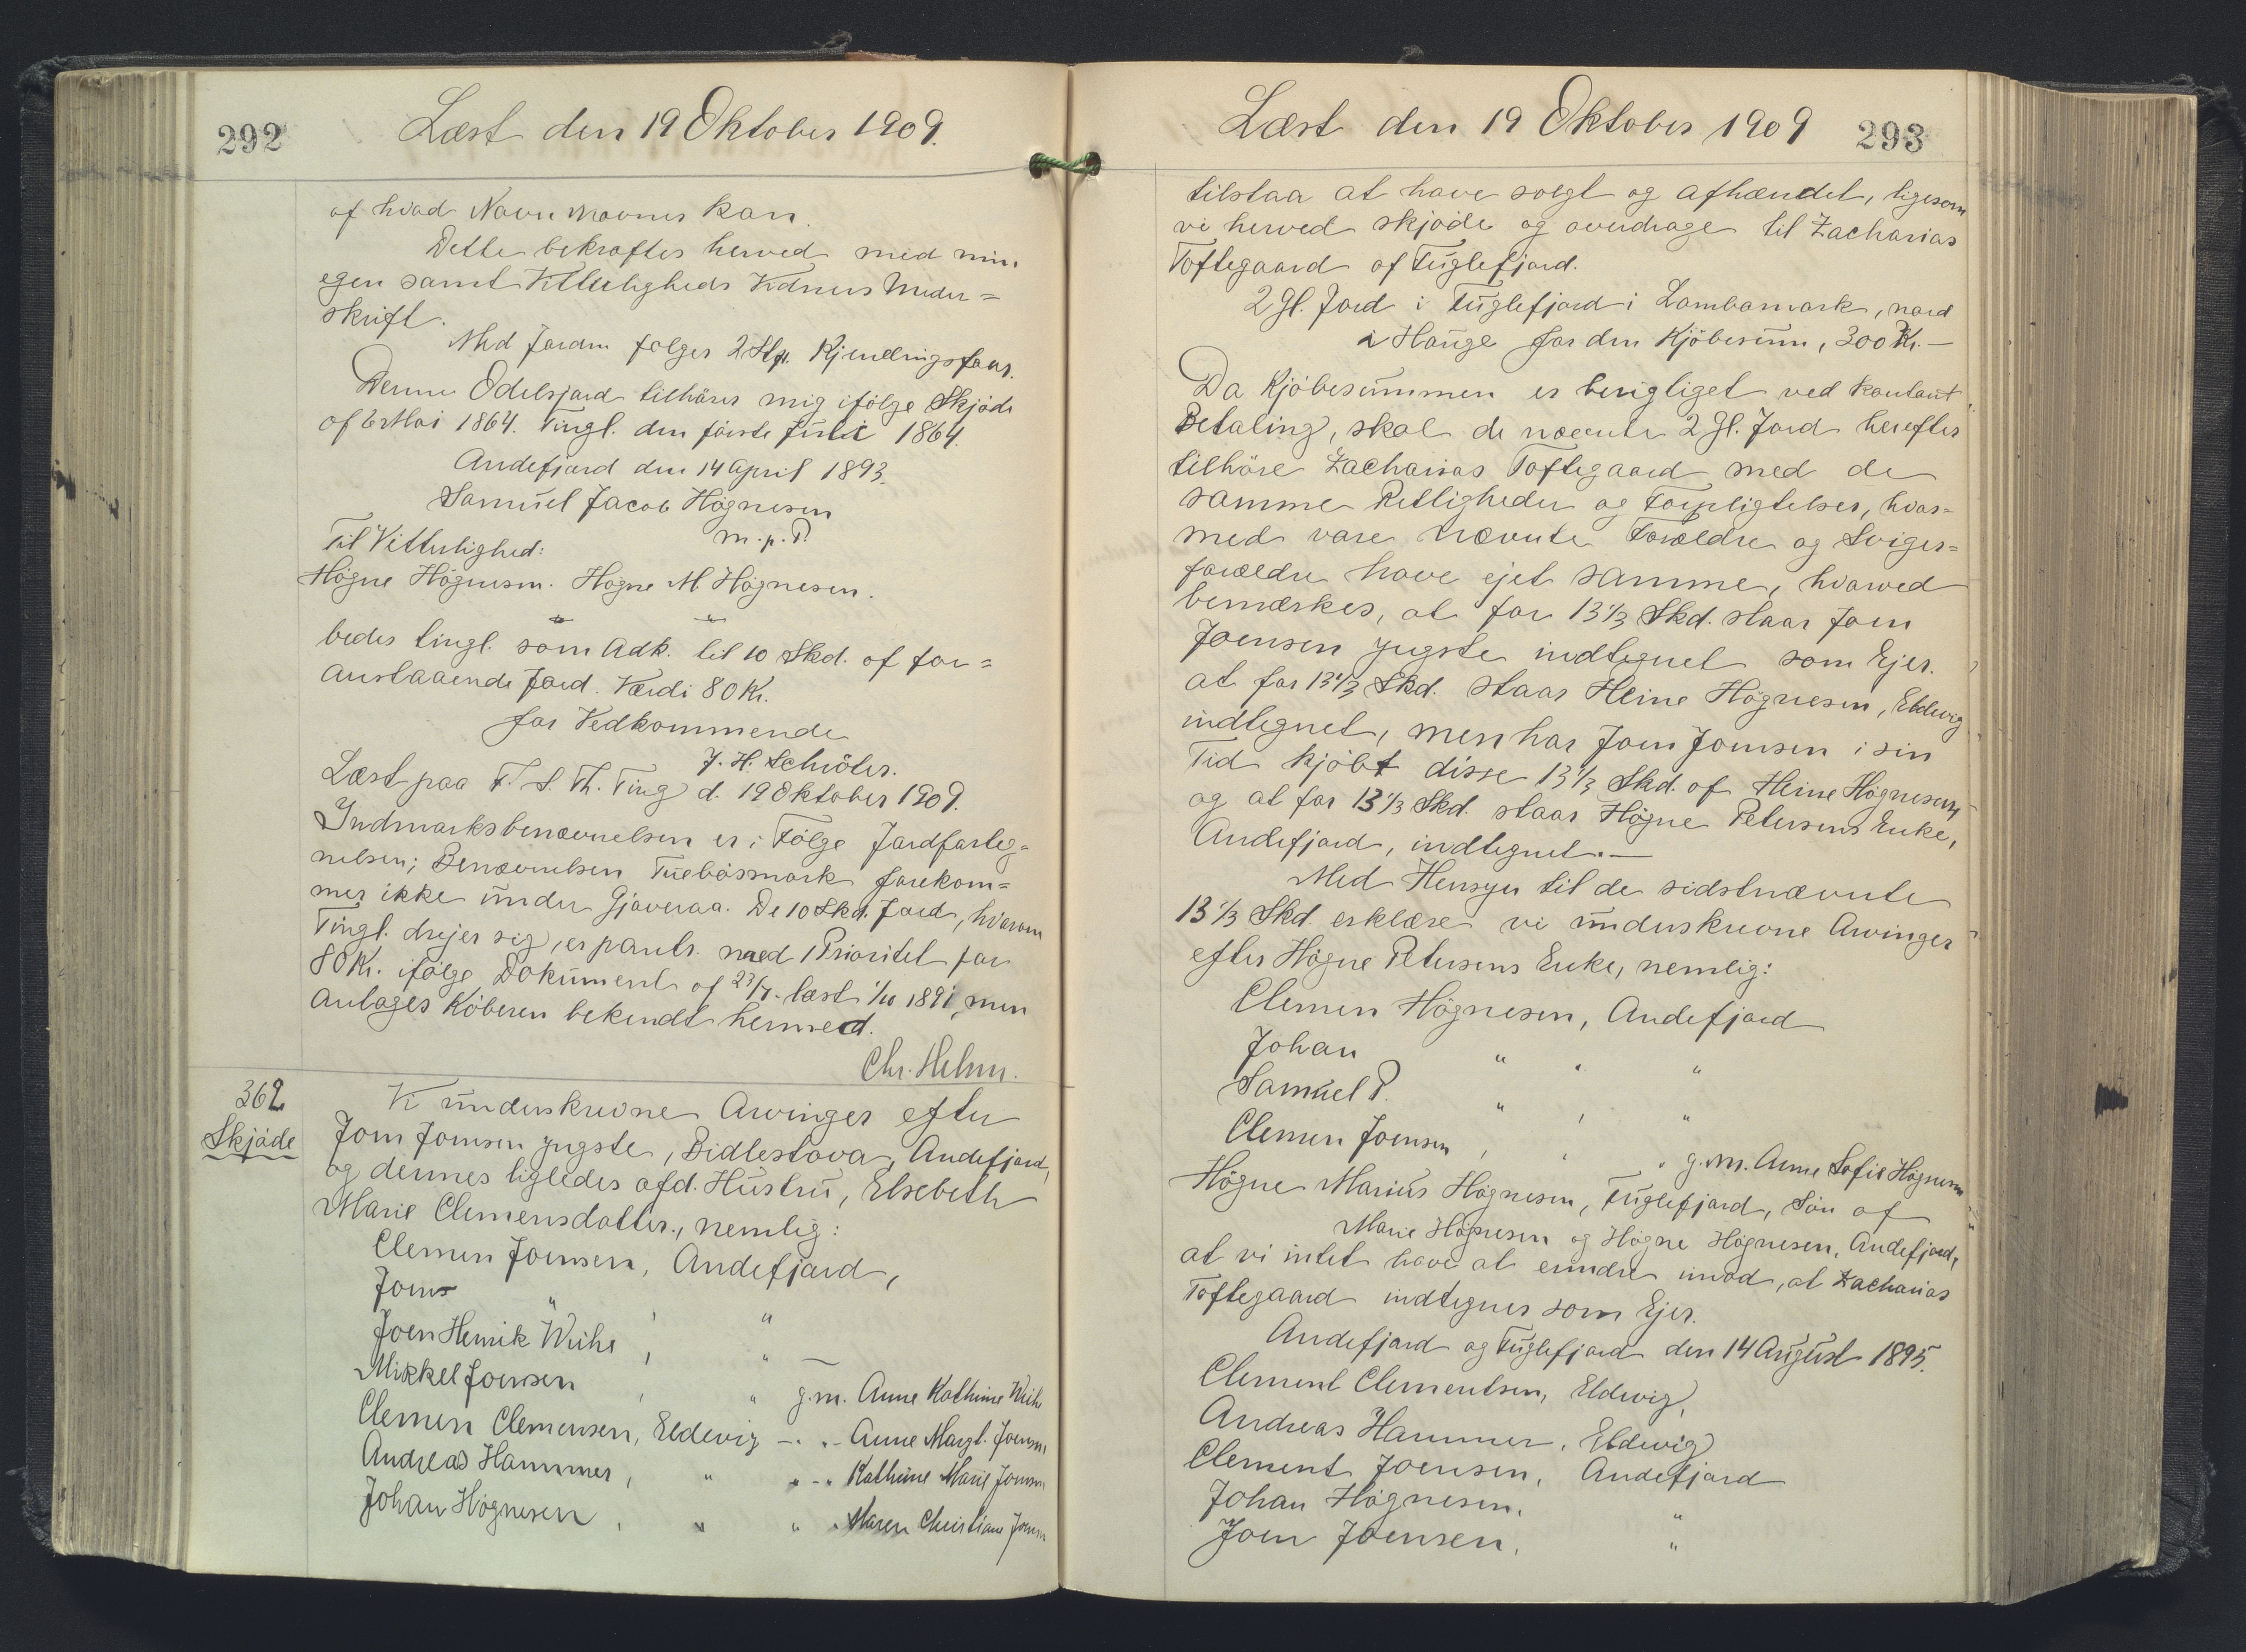 292
Læst den 19 Oktober 1909.
af hvad Navn nævnes kan.
Dette bekræftes herved med min
egen samt Vitterligheds Vidners Under=
skrift.
Med Jorden følger 2 Stk. Kjendingsfaar.
Denne Odelsjord tilhører mig ifølge Skjøde
af 6 Mai 1864. Tingl. den første Juli 1864.
Andefjord den 14 April 1893.
Samuel Jacob Høgnesen
m. p. P.
Til Vitterlighed:
Høgne Høgnesen. Høgne M Høgnesen.
bedes tingl. som Adk. til 10 Skd. af for=
anstaaende Jord. Værdi 80 Kr.
for Vedkommende
J. H. Schrøter.
Læst paa F. S. Th. Ting d. 19 Oktober 1909.
Indmarksbenævnelsen er i Følge Jordforteg=
nelsen; Benævnelsen Tuebøsmark forekom=
mer ikke under Gjøveraa. De 10 Skd. Jord, hvorom
Tingl. drejer sig, er pants. med 1 Prioritet for
80 Kr. ifølge Dokument af 23/7. læst 1/10 1891, men
antages Køberen bekendt hermed.
Chr. Helm.
362
Skjøde
Vi underskrevne Arvinger efter
Joen Joensen yngste, Bidlestova, Andefjord,
og dennes ligledes afd. Hustru, Elsebeth
Marie Clemensdatter, nemlig:
Clemen Joensen, Andefjord,
Joens " , "
Joen Henrik Weihe , " —
Mikkel Joensen , " g. m. Anne Kathrine Weihe
Clemen Clemensen, Eldevig — . - Anne Margt. Joensen
Andreas Hammer , " " - " Kathrine Marie Joensen
Johan Høgnesen , " " " Maren Christiane Joensen
Læst den 19 Oktober 1909
293
tilstaa at have solgt og afhændet, ligesom
vi herved skjøde og overdrage til Zacharias
Toftegaard af Fuglefjord.
2 Gl. Jord i Fuglefjord i Lambamark, nord
i Hauge for den Kjøbesum, 300 Kr. —
Da Kjøbesummen er berigtiget ved kontant
Betaling, skal de nævnte 2 Gl. Jord herefter
tilhøre Zacharias Toftegaard med de
samme Rettigheder og Forpligtelser, hvor=
med vore nævnte Forældre og Sviger=
forældre have ejet samme, hvorved
bemærkes, at for 13⅓ Skd. staar Joen
Joensen yngste indtegnet som Ejer.
at for 13⅓ Skd. staar Heine Høgnesen, Eldevig
indtegnet, men har Joen Joensen i sin
Tid kjøbt disse 13⅓ Skd. af Heine Høgnesen,
og at for 13⅓ Skd. staar Høgne Petersens Enke,
Andefjord, indtegnet. —
Med Hensyn til de sidstnævnte
13⅓ Skd. erklære vi underskrevne Arvinger
efter Høgne Petersens Enke, nemlig:
Clemen Høgnesen, Andefjord
Johan " , "
Samuel P. " , "
Clemen Joensen , , " g. m. Anne Sofie Høgnesen
Høgne Marius Høgnesen, Fuglefjord, Søn af
Marie Høgnesen og Høgne Høgnesen, Andefjord,
at vi intet have at erindre imod, at Zacharias
Toftegaard indtegnes som Ejer.
Andefjord og Fuglefjord den 14 August 1895.
Clement Clementsen, Eldevig,
Andreas Hammer, Eldevig
Clement Joensen, Andefjord
Johan Høgnesen, "
Joen Joensen, "